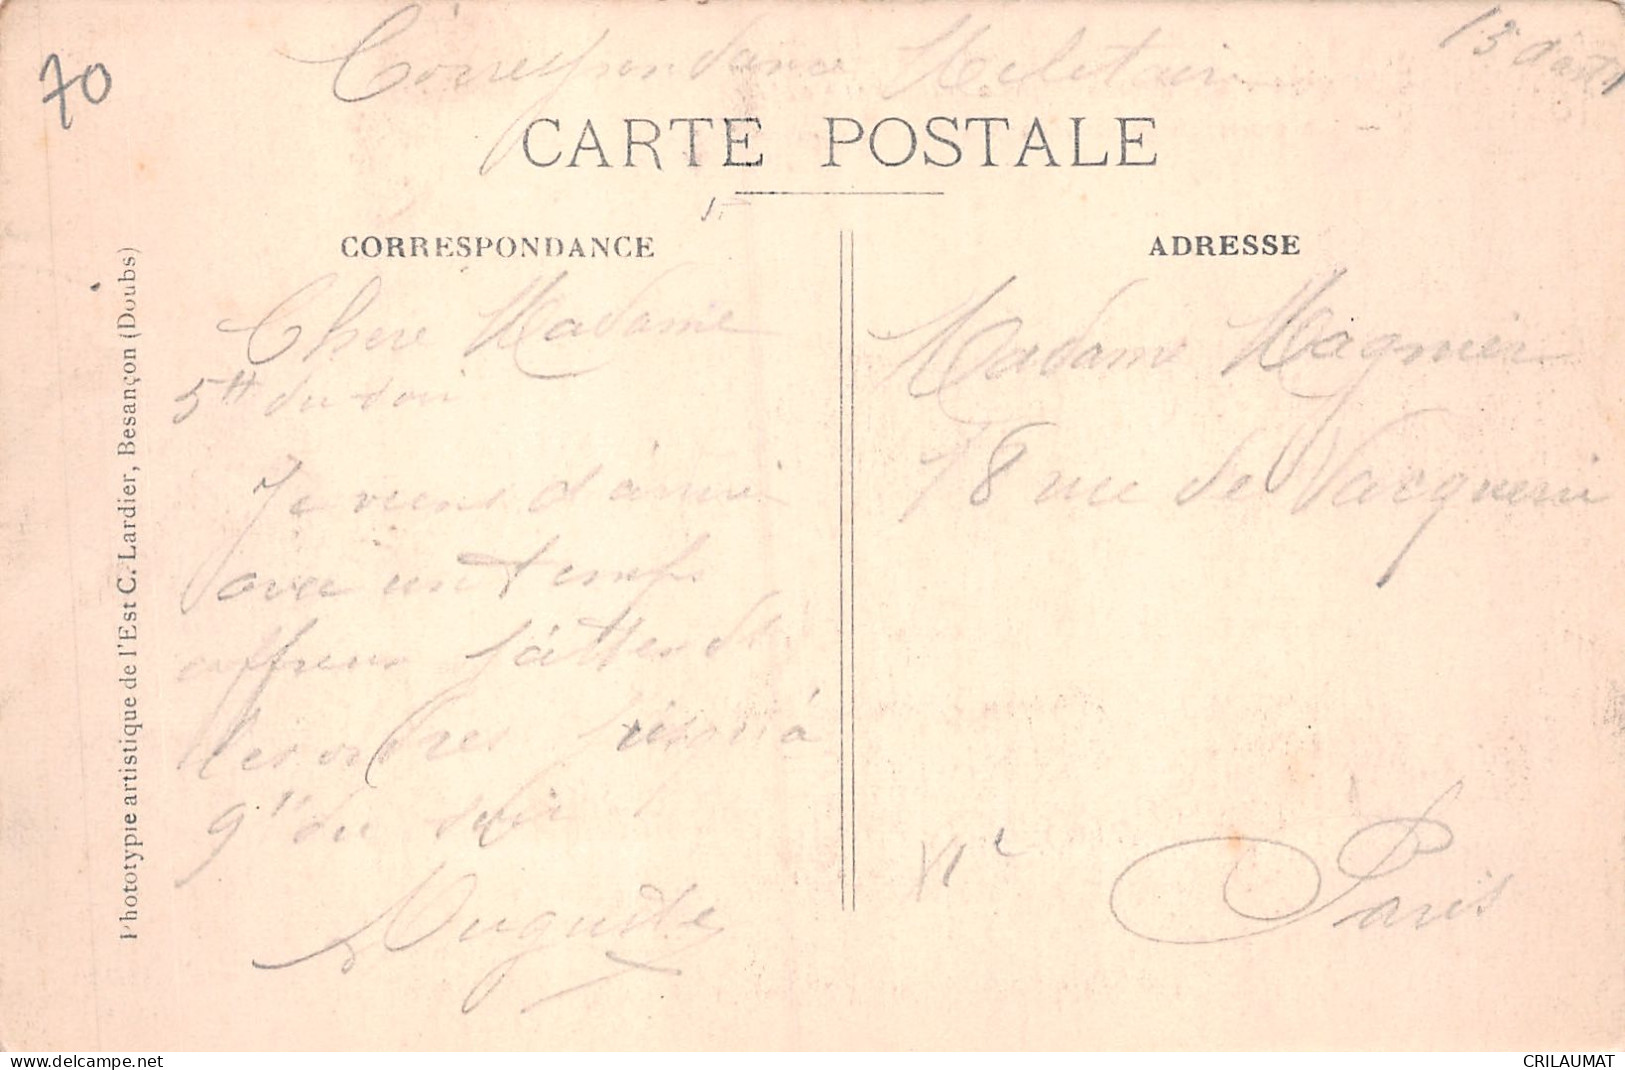 70
Correspondance Militaire
13 Août
CARTE POSTALE
CORRESPONDANCE
ADRESSE
Chere Madame
5H du soir
Je viens d'arrivé
avec un temps
affreux j'attends
les ordres jusqu'à
9H du soir
Auguste
Madame Magnier
78 rue de Vacquerie
XIe
Paris
Phototypie artistique de l'Est C. Lardier, Besançon (Doubs)
www.delcampe.net
CRILAUMAT